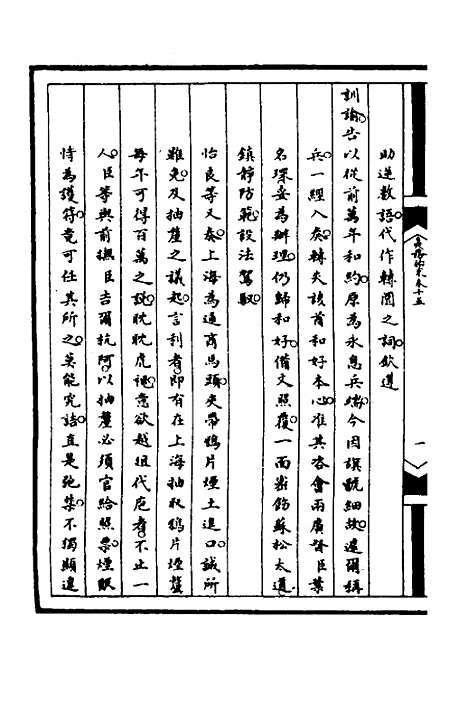 助逆數語代作轉圜之詞欽遵
訓諭告以從前萬年和約原為永息兵端今因旗號細故遽爾稱
兵一經入奏轉失該酋和好本心准其咨會兩廣督臣葉
名琛妥為辦理仍歸和好備文照覆一面密飭蘇松太道
鎮靜防範設法駕馭
怡良等又奏上海為通商馬頭夾帶鴉片煙土進口誠所
難免及抽釐之議起言利者即有在上海抽收鴉片煙釐
每年可得百萬之說眈眈虎視意欲越俎代庖者不止一
人臣等與前撫臣吉爾杭阿以抽釐必須官給照票煙販
恃為護符竟可任其所之莫能究詰直是弛禁不獨顯違
卷十五
一